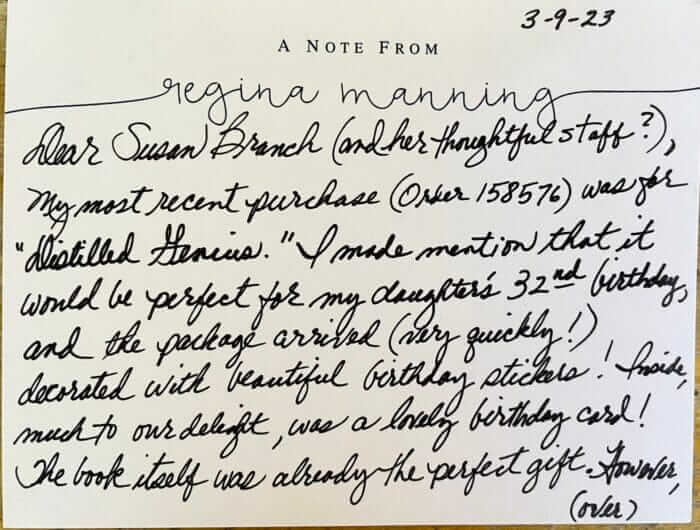 3-9-23
A NOTE FROM
regina manning
Dear Susan Branch (and her thoughtful staff?),
My most recent purchase (Order 158576) was for
"Distilled Genius." I made mention that it
would be perfect for my daughter's 32nd birthday,
and the package arrived (very quickly!)
decorated with beautiful birthday stickers! Inside,
much to our delight, was a lovely birthday card!
The book itself was already the perfect gift. However,
(over)